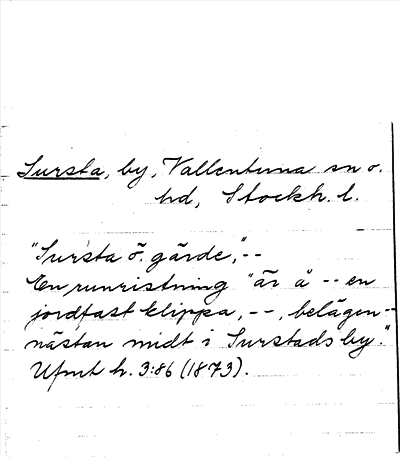 Sursta, by, Vallentuna sn o.
hd, Stockh. l.
"Sursta ö. gärde,"--
En runristning "är å -- en
jordfast klippa, --, belägen--
nästan midt i Surstads by."
Ufmt h. 3:86 (1873).